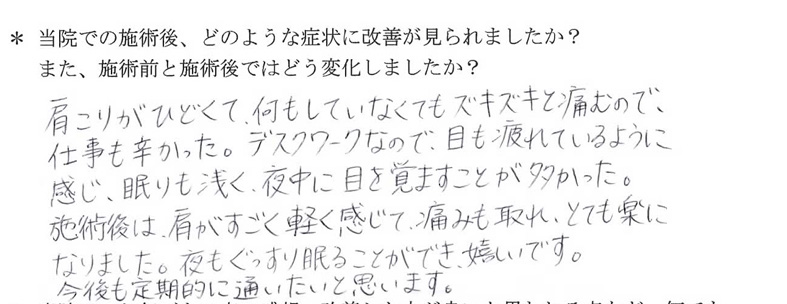 * 当院での施術後、どのような症状に改善が見られましたか？
また、施術前と施術後ではどう変化しましたか？
肩こりがひどくて、何もしていなくてもズキズキと痛むので、
仕事も辛かった。デスクワークなので、目も疲れているように
感じ、眠りも浅く、夜中に目を覚ますことが多かった。
施術後は、肩がすごく軽く感じて、痛みも取れ、とても楽に
なりました。夜もぐっすり眠ることができ、嬉しいです。
今後も定期的に通いたいと思います。